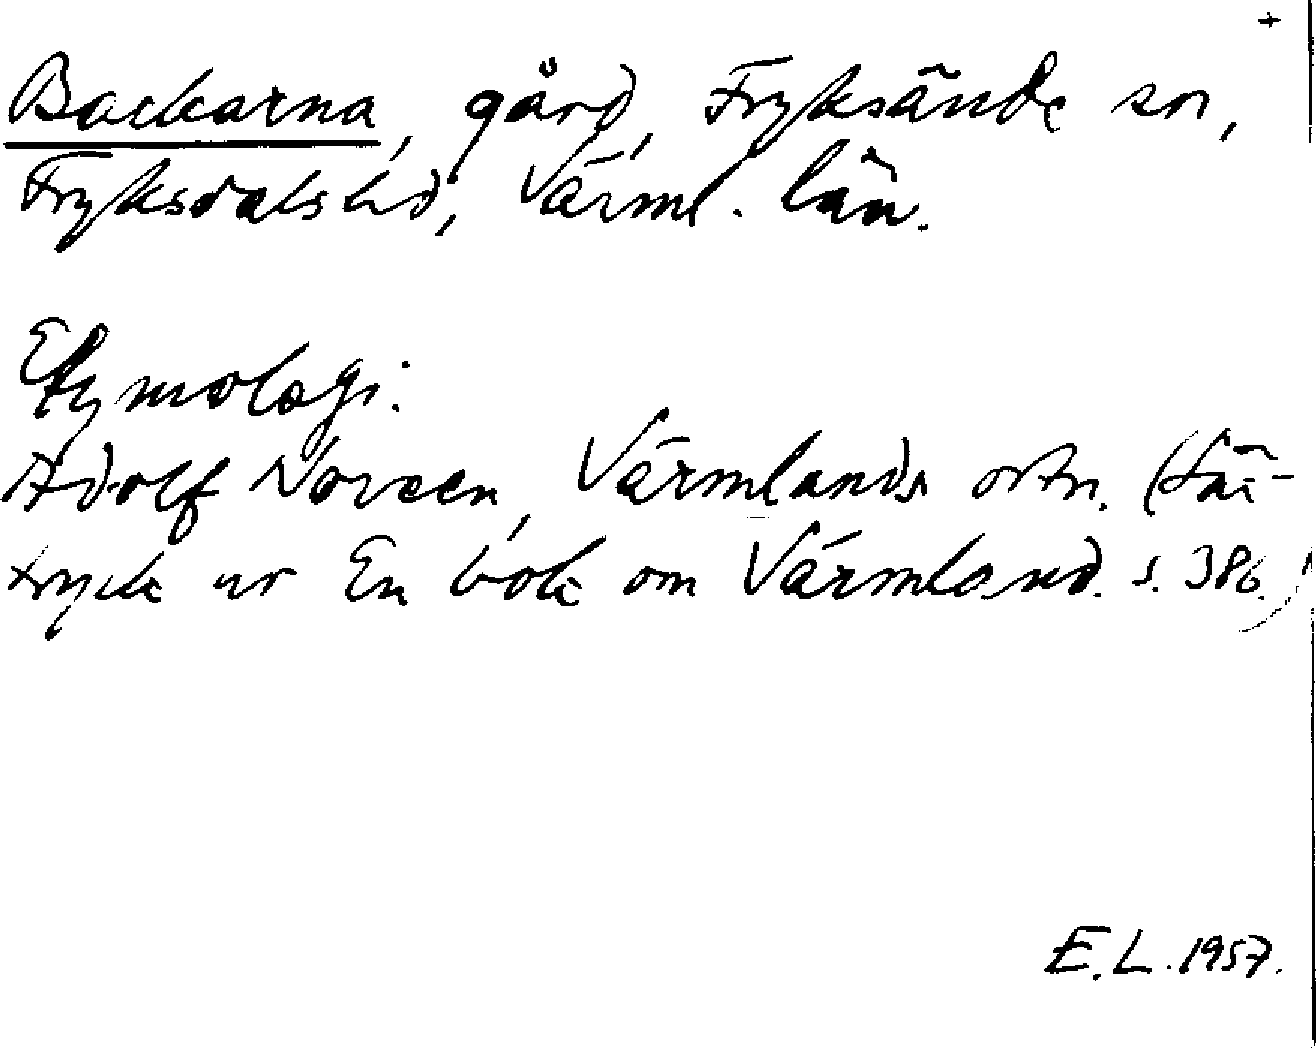 +
Backarna, gård, Fryksände sn,
Fryksdals hd, Värml. län.
Etymologi:
Adolf Noreen, Värmlands ortn. (Sär-
tryck ur En bok om Värmland. s. 386.)
E.L. 1957.